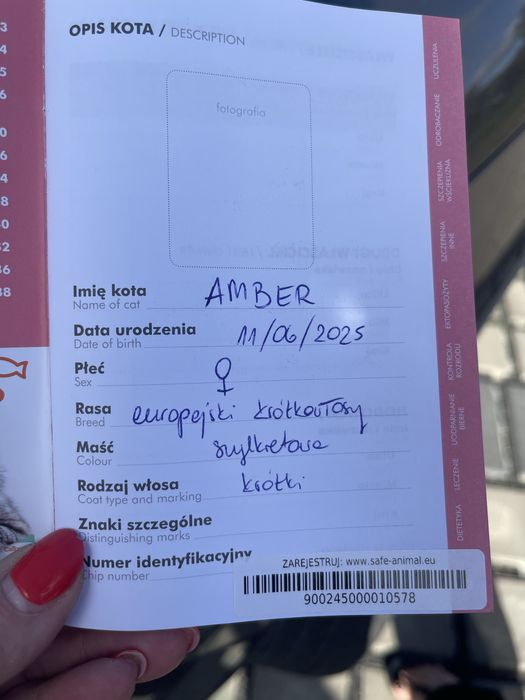 OPIS KOTA / DESCRIPTION
fotografia
Imię kota AMBER
Name of cat
Data urodzenia 11/06/2025
Date of birth
Płeć ♀
Sex
Rasa europejski krótkowłosy
Breed
Maść szylkretowa
Colour
Rodzaj włosa krótki
Coat type and marking
Znaki szczególne
Distinguishing marks
Numer identyfikacyjny
Chip number
ZAREJESTRUJ: www.safe-animal.eu
900245000010578
UCZULENIA
ODROBACZANIE
SZCZEPIENIA
WŚCIEKLIZNA
SZCZEPIENIA
INNE
EKTOPASOŻYTY
KONTROLA
ROZRODU
UODPARNIANIE
BIERNE
LECZENIE
DIETETYKA